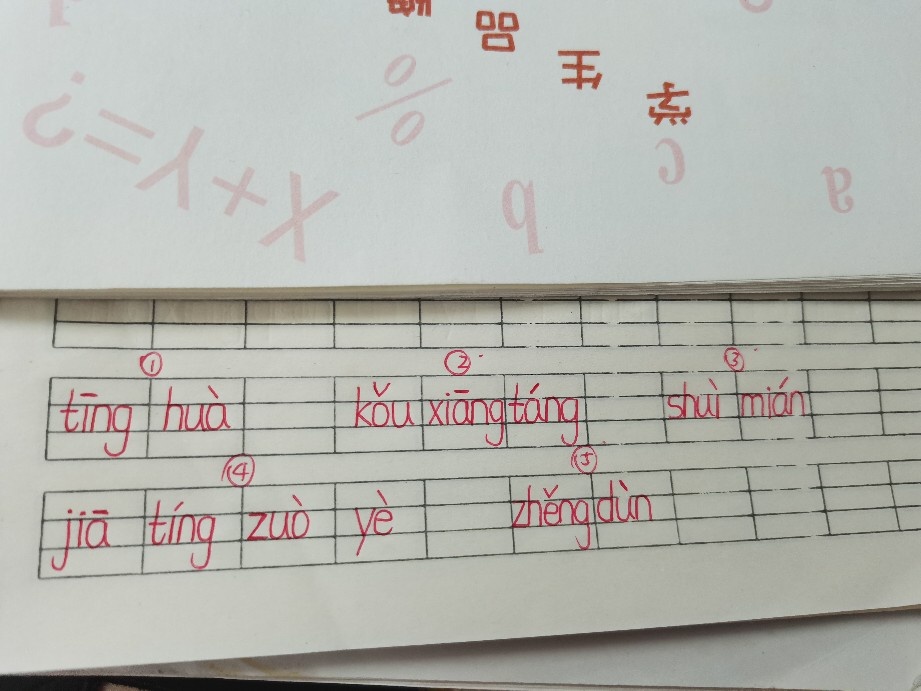 学生品
a
b
c
%
X+Y=?
① ② ③
tīng huà kǒu xiāng táng shuì mián
④ ⑤
jiā tíng zuò yè zhěng dùn